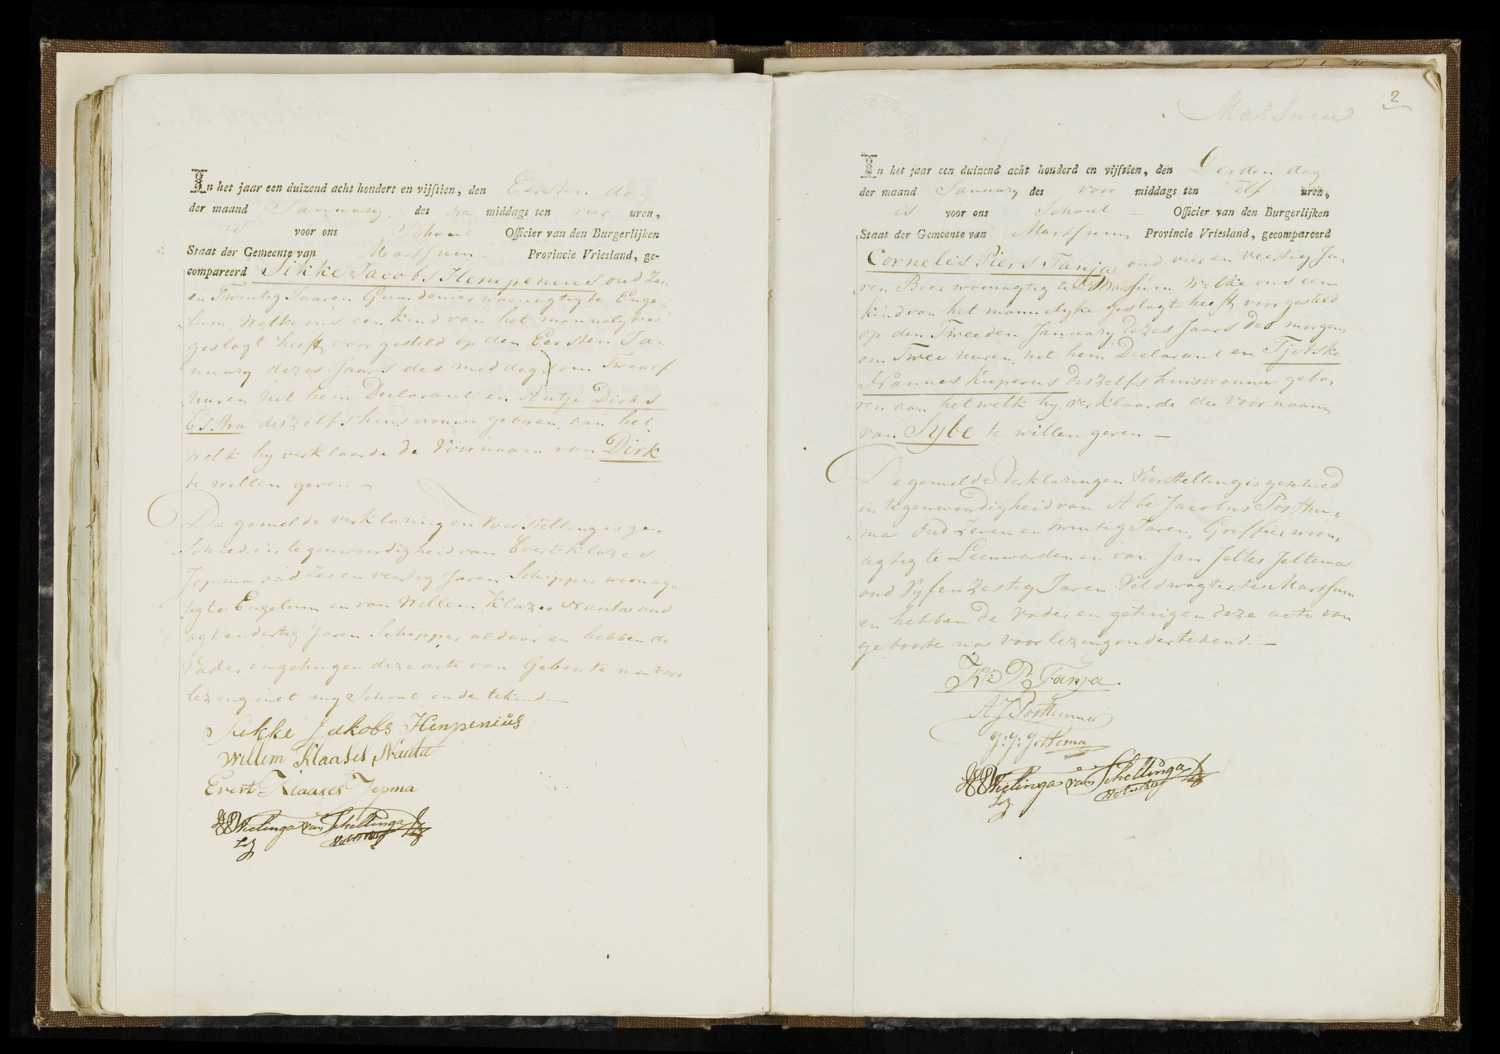 In het jaar een duizend acht hondert en vijftien, den Eersten dag
der maand January des na middags ten vier uren,
is voor ons Schout Officier van den Burgerlijken
Staat der Gemeente van Marssum Provincie Vriesland, ge-
compareerd Sikke Jacobs Hempenius oud
en Twintig Jaaren woonagtig te Enge-
lum, welke ons een kind van het mannelyke
geslagt heeft voor gesteld op den Eersten Ja-
nuary dezes Jaars des middags om Twaalf
uuren uit hem Declarant en Antje Dirks
deszelfs huisvrouw geboren, aan het
welk hy verklaarde de Voornaam van Dirk
te willen geven
De gemelde verklaring en Voorstelling is ge-
schied in tegenwoordigheid van Evert Klazes
Jepma oud Zeven en veertig Jaren Schipper woonag-
tig te Engelum en van Willem Klazes Nauta oud
agt en dertig Jaren Schipper aldaar en hebben de
Vader en getuigen deze acte van Geboorte na voor
lezing met my Schout onder tekend
Sikke Jakobs Hempeniüs
Willem Klaases Nauta
Evert Klaases Jepma
van Schellinga
2
Marssum
In het jaar een duizend acht honderd en vijftien, den Derden dag
der maand January des voor middags ten elf uren,
is voor ons Schout Officier van den Burgerlijken
Staat der Gemeente van Marssum Provincie Vriesland, gecompareerd
Cornelis Piers Tanja oud vier en veertig Ja-
ren Boer woonagtig te Marssum welke ons een
kind van het mannelyke geslagt heeft voorgesteld
op den Tweeden January dezes Jaars des morgens
om Twee uuren uit hem Declarant en Tjetske
Hannes Kuperus deszelfs huisvrouw gebo-
ren aan het welk hy verklaarde de Voornaam
van Sybe te willen geven
De gemelde Verklaringen Voorstelling is geschied
in tegenwoordigheid van Abe Jacobus Posthu-
ma Oud Zeven en twintig Jaren, woon-
agtig te Leeuwarden en van Jan Jeltes Jeltema
oud Vyf en Zestig Jaren Veldwagter te Marssum
en hebben de Vader en getuigen deze acte van
geboorte na voorlezing ondertekend
P Tanja
A J Posthuma
J: J: Jeltema
van Schellinga